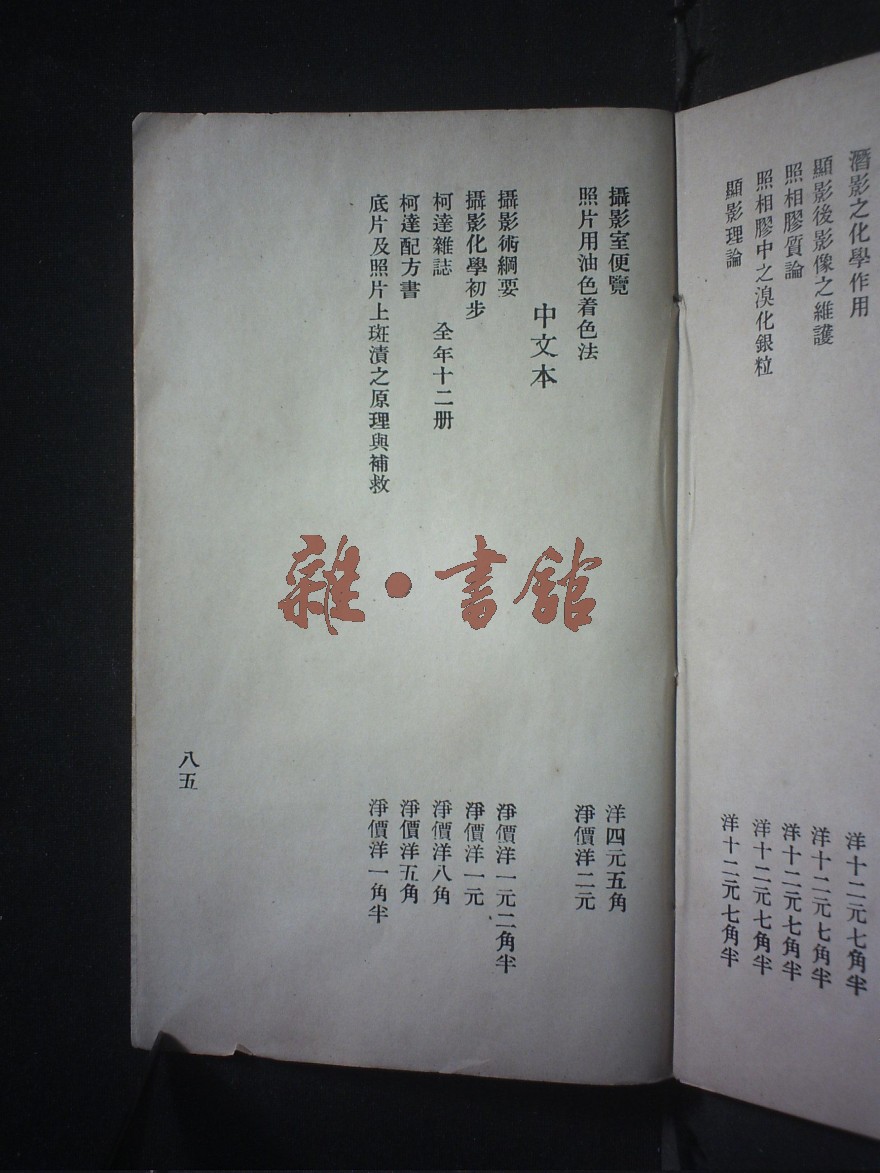 潛影之化學作用 洋十二元七角半
顯影後影像之維護 洋十二元七角半
照相膠質論 洋十二元七角半
照相膠中之溴化銀粒 洋十二元七角半
顯影理論 洋十二元七角半
攝影室便覽 洋四元五角
照片用油色着色法 淨價洋二元
中文本
攝影術綱要 淨價洋一元二角半
攝影化學初步 淨價洋一元
柯達雜誌 全年十二册 淨價洋八角
柯達配方書 淨價洋五角
底片及照片上斑漬之原理與補救 淨價洋一角半
八五
雜·書館